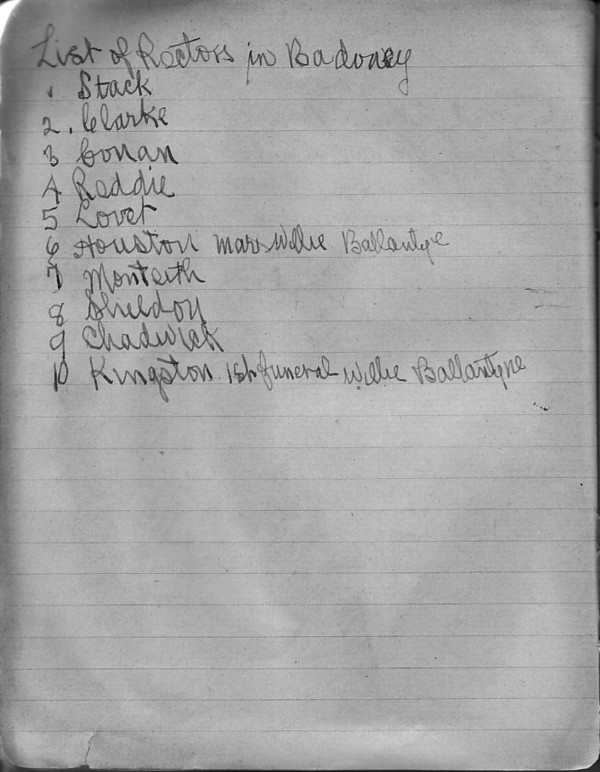 List of Rectors in Badoney
1 Stack
2. Clarke
3 Conan
4 Reddie
5 Lovet
6 Houston marr Willie Ballantyne
7 Monteith
8 Sheldoy
9 Chadwick
10 Kingston 1st funeral Willie Ballantyne